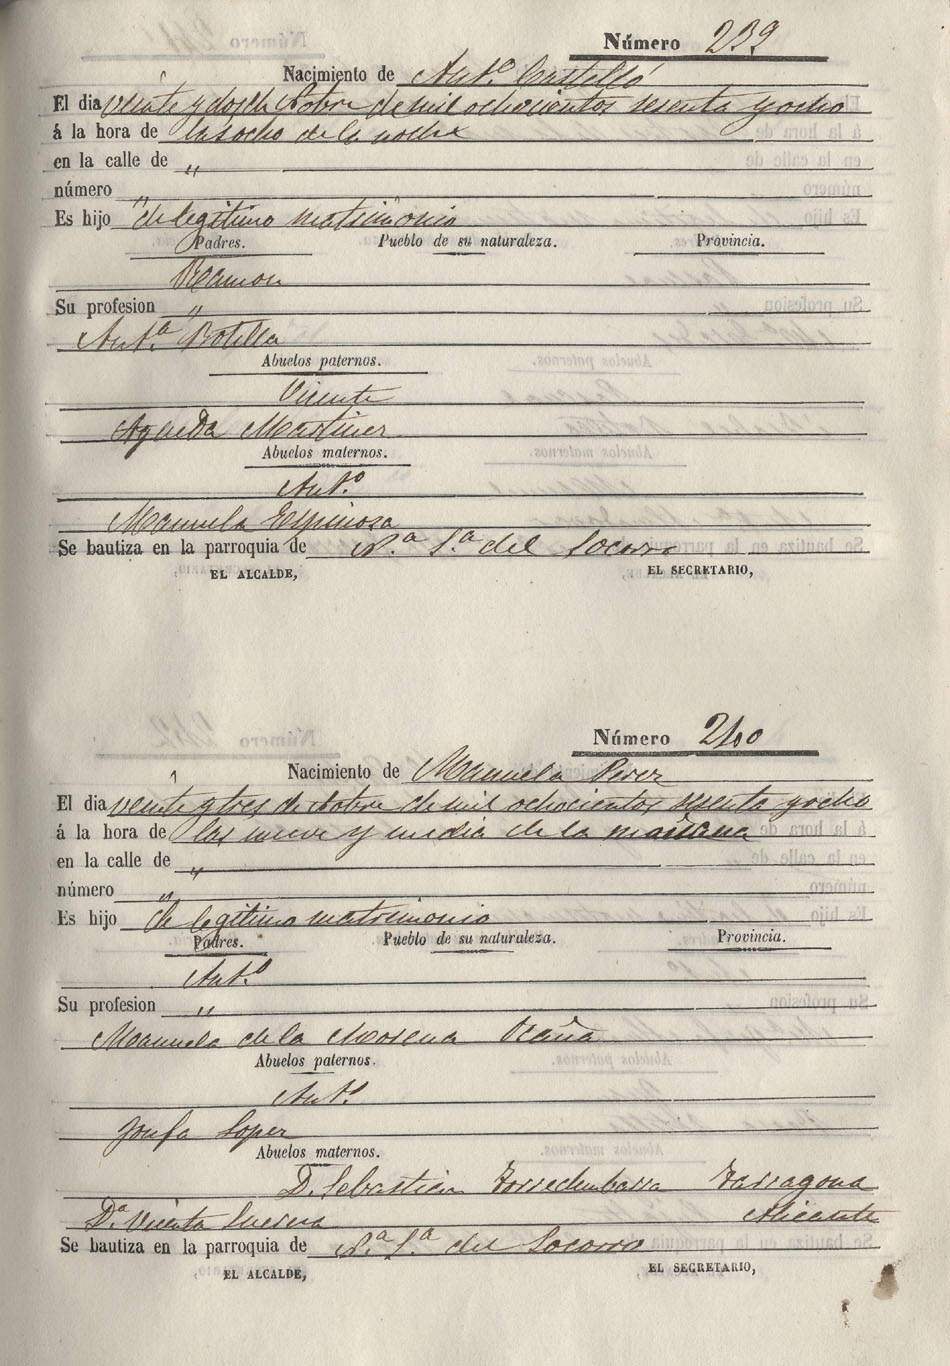 Número 239
Nacimiento de Ant.º Castelló
El dia veinte y dos de Nobre de mil ochocientos sesenta y ocho
á la hora de las ocho de la noche
en la calle de "
número "
Es hijo de legitimo matrimonio
Padres. Pueblo de su naturaleza. Provincia.
Ramon
Su profesion "
Ant.ª Botella
Abuelos paternos.
Vicente
Agueda Martinez
Abuelos maternos.
Ant.º
Manuela Espinosa
Se bautiza en la parroquia de N.ª S.ª del Socorro
EL ALCALDE, EL SECRETARIO,
Número 240
Nacimiento de Manuela Perez
El dia veinte y tres de Nobre de mil ochocientos sesenta y ocho
á la hora de las nueve y media de la mañana
en la calle de "
número "
Es hijo de legitimo matrimonio
Padres. Pueblo de su naturaleza. Provincia.
Ant.º
Su profesion "
Manuela de la Morena
Abuelos paternos.
Ant.º
Josefa Lopez
Abuelos maternos.
D. Sebastian Torredembarra Tarragona
D.ª Vicenta Alicante
Se bautiza en la parroquia de N.ª S.ª del Socorro
EL ALCALDE, EL SECRETARIO,